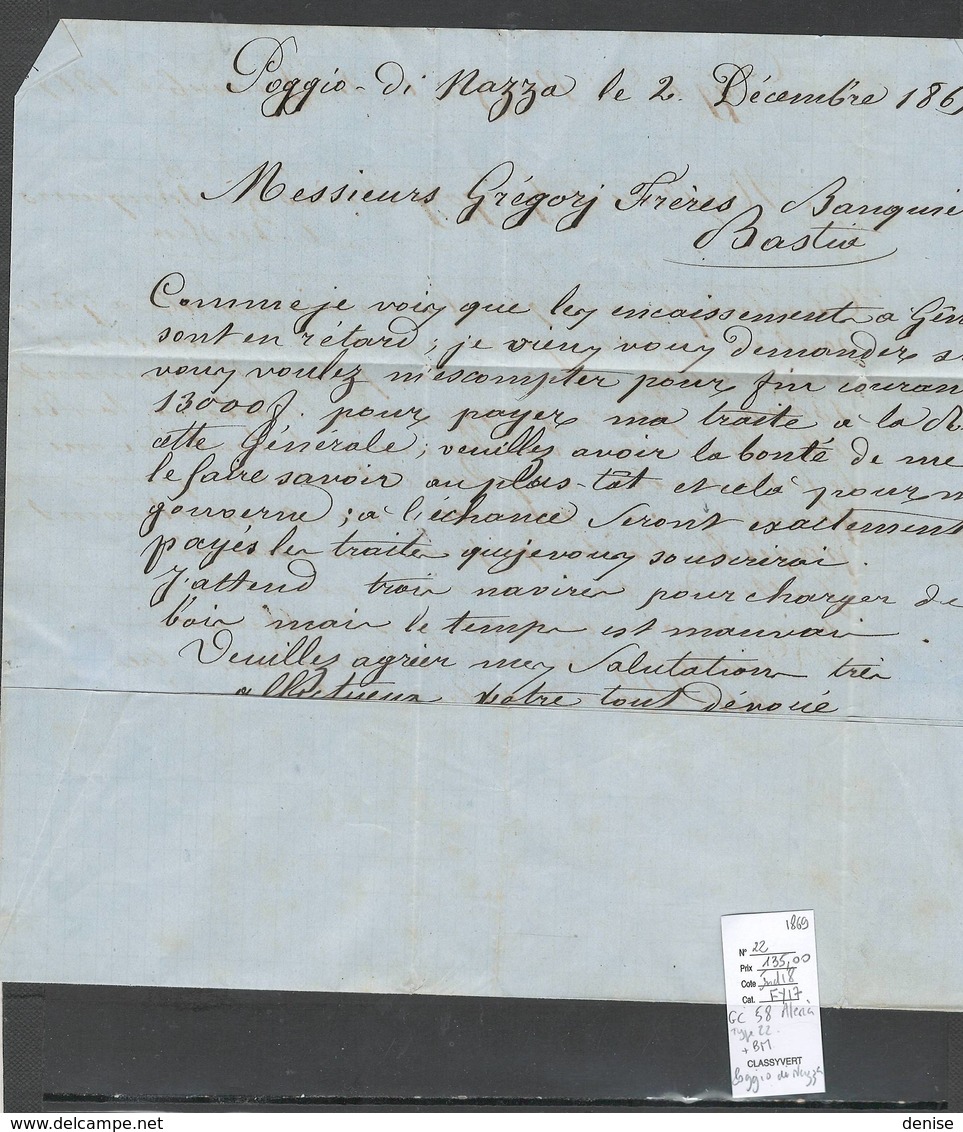 Poggio-di Nazza le 2. Décembre 186
Messieurs Grégorj Frères Banquie
Bastia
Comme je vois que les encaissements a Gên
sont en rétard, je viens vous demander s
vous voulez m'escompter pour fin couran
13000f. pour payer ma traite à la R
ette Générale; veuillez avoir la bonté de me
le faire savoir au plus-tôt et celà pour m
gouverne; à l'échance seront exactement
payés les traites que je vous souscrirai.
J'attend trois navires pour charger de
bois mais le temps est mauvais
Veuillez agréer mes Salutations très
affectueux Votre tout dévoué
1869
N° 22
Prix 135,00
Cote Ind 18
Cat. F417
GC 58 Aleria
Type 22.
+ BM
CLASSYVERT
Poggio di Nazza
denise